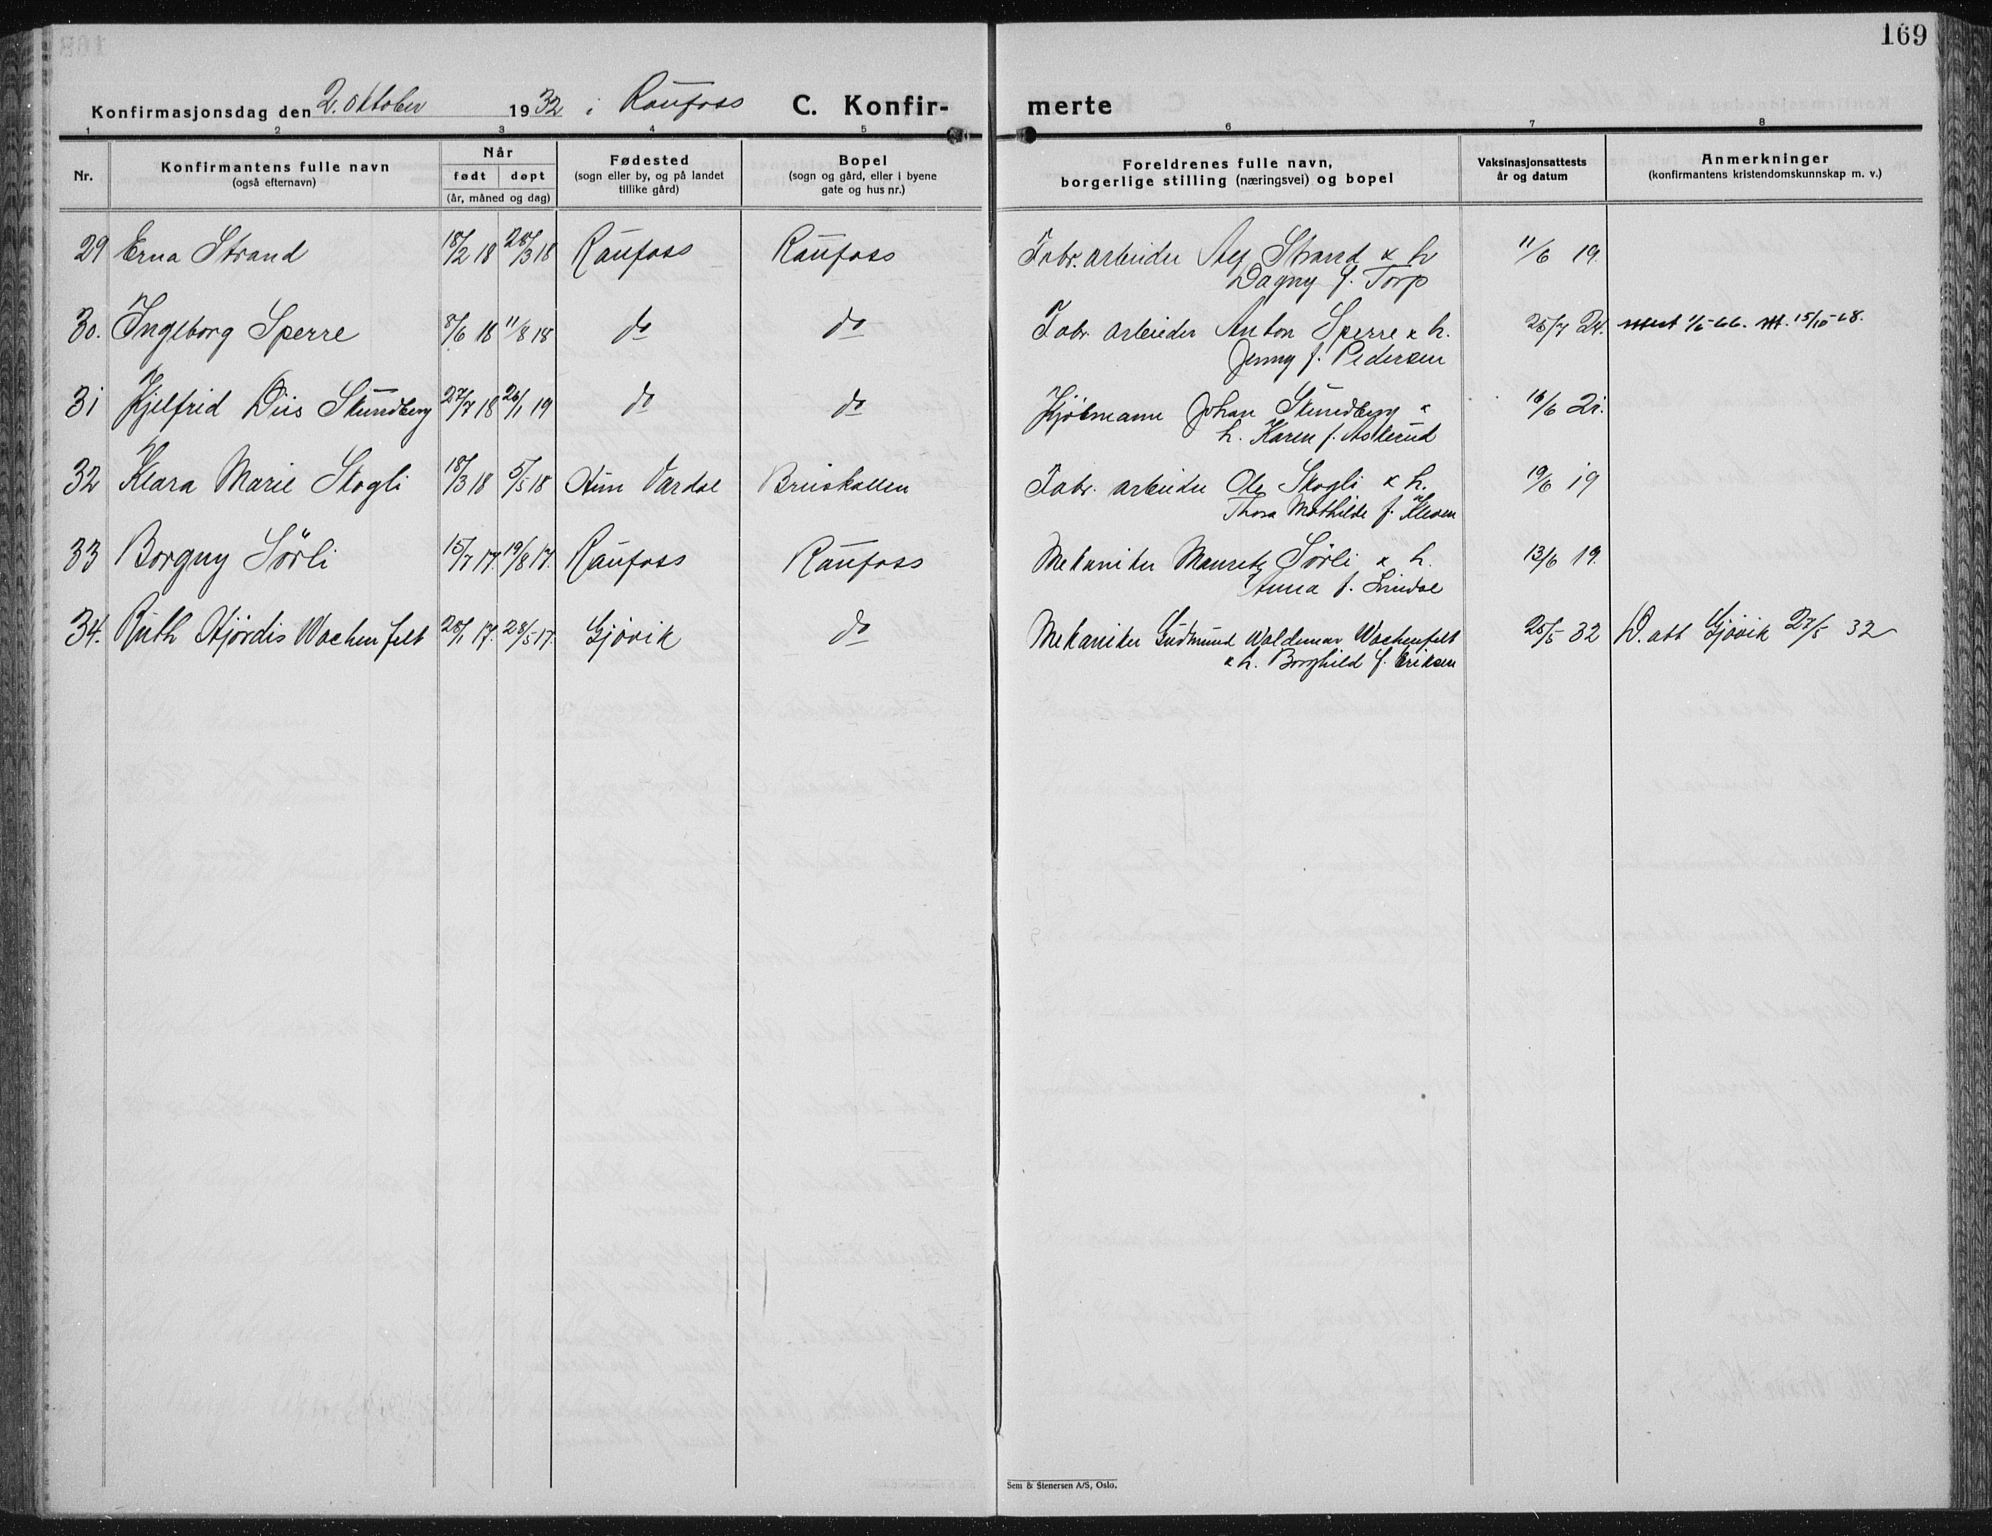 169
Konfirmasjonsdag den 2. oktober 1932 i Raufoss C. Konfirmerte
1 2 3 4 5 6 7 8
Nr.
Konfirmantens fulle navn
(også efternavn)
Når
født døpt
(år, måned og dag)
Fødested
(sogn eller by, og på landet
tillike gård)
Bopel
(sogn og gård, eller i byene
gate og hus nr.)
Foreldrenes fulle navn,
borgerlige stilling (næringsvei) og bopel
Vaksinasjonsattests
år og datum
Anmerkninger
(konfirmantens kristendomskunnskap m. v.)
29 Erna Strand 18/2 18 28/3 18 Raufoss Raufoss Fabr. arbeider Alf Strand & h 11/6 19.
Dagny f. Torp
30. Ingeborg Sperre 8/6 18 11/8 18 do do Fabr. arbeider Anton Sperre & h. 25/7 24. 15/10-68.
Jenny f. Pedersen
31 Kjelfrid Diis Stundberg 27/7 18 26/1 19 do do Kjøbmann Johan Stundberg & 16/6 21.
h. Karen f. Asterud
32 Klara Marie Skogli 18/3 18 5/5 18 Hun Vardal Bruskallen Fabr. arbeider Ole Skogli & h. 19/6 19
Thora Mathilde f. Kleven
33 Borgny Sørli 15/7 17. 19/8 17. Raufoss Raufoss Mekaniker Mauritz Sørli & h. 13/6 19.
Anna f. Lindal
34. Ruth Hjørdis Wachenfelt 28/1 17. 28/5 17. Gjøvik do Mekaniker Gudmund Waldemar Wachenfelt 25/5 32 D. att Gjøvik 27/5 32
& h. Borghild f. Eriksen
Sem & Stenersen A/S, Oslo.